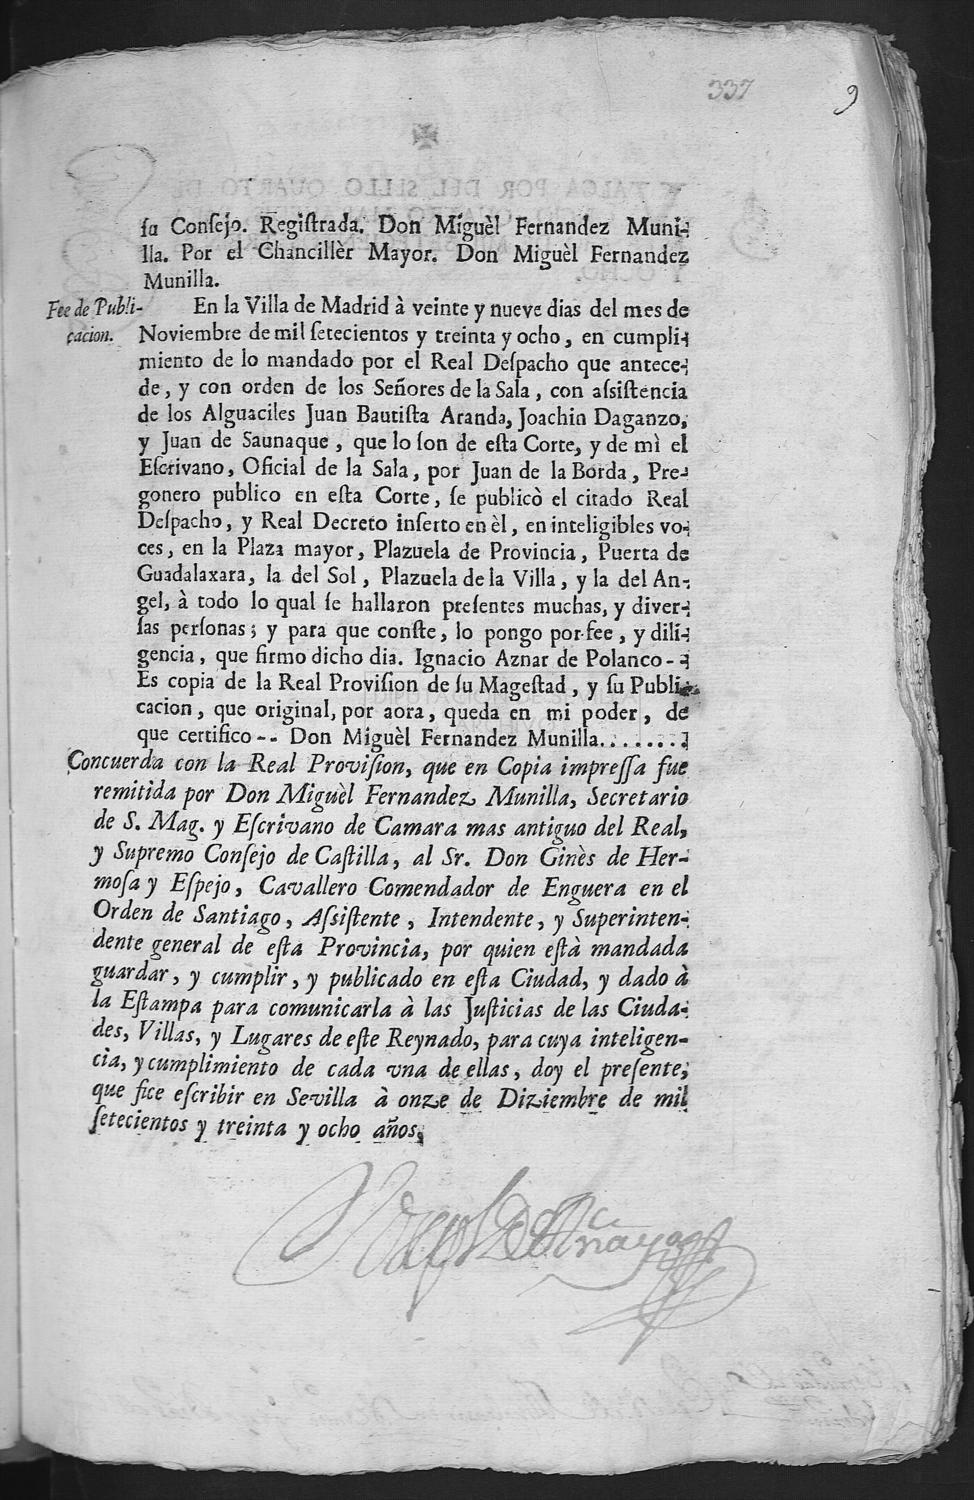 337
9
ſu Conſejo. Regiſtrada. Don Miguèl Fernandez Muni-
lla. Por el Chancillèr Mayor. Don Miguèl Fernandez
Munilla.
Fee de Publi-
cacion.
En la Villa de Madrid à veinte y nueve dias del mes de
Noviembre de mil ſetecientos y treinta y ocho, en cumpli-
miento de lo mandado por el Real Deſpacho que antece-
de, y con orden de los Señores de la Sala, con aſsiſtencia
de los Alguaciles Juan Bautiſta Aranda, Joachin Daganzo,
y Juan de Saunaque, que lo ſon de eſta Corte, y de mì el
Eſcrivano, Oficial de la Sala, por Juan de la Borda, Pre-
gonero publico en eſta Corte, ſe publicò el citado Real
Deſpacho, y Real Decreto inſerto en èl, en inteligibles vo-
ces, en la Plaza mayor, Plazuela de Provincia, Puerta de
Guadalaxara, la del Sol, Plazuela de la Villa, y la del An-
gel, à todo lo qual ſe hallaron preſentes muchas, y diver-
ſas perſonas; y para que conſte, lo pongo por fee, y dili-
gencia, que firmo dicho dia. Ignacio Aznar de Polanco--
Es copia de la Real Proviſion de ſu Mageſtad, y ſu Publi-
cacion, que original, por aora, queda en mi poder, de
que certifico-- Don Miguèl Fernandez Munilla........
Concuerda con la Real Proviſion, que en Copia impreſſa fue
remitida por Don Miguèl Fernandez Munilla, Secretario
de S. Mag. y Eſcrivano de Camara mas antiguo del Real,
y Supremo Conſejo de Caſtilla, al Sr. Don Ginès de Her-
moſa y Eſpejo, Cavallero Comendador de Enguera en el
Orden de Santiago, Aſsiſtente, Intendente, y Superinten-
dente general de eſta Provincia, por quien eſtà mandada
guardar, y cumplir, y publicado en eſta Ciudad, y dado à
la Eſtampa para comunicarla à las Juſticias de las Ciuda-
des, Villas, y Lugares de eſte Reynado, para cuya inteligen-
cia, y cumplimiento de cada vna de ellas, doy el preſente,
que fice eſcribir en Sevilla à onze de Diziembre de mil
ſetecientos y treinta y ocho años,